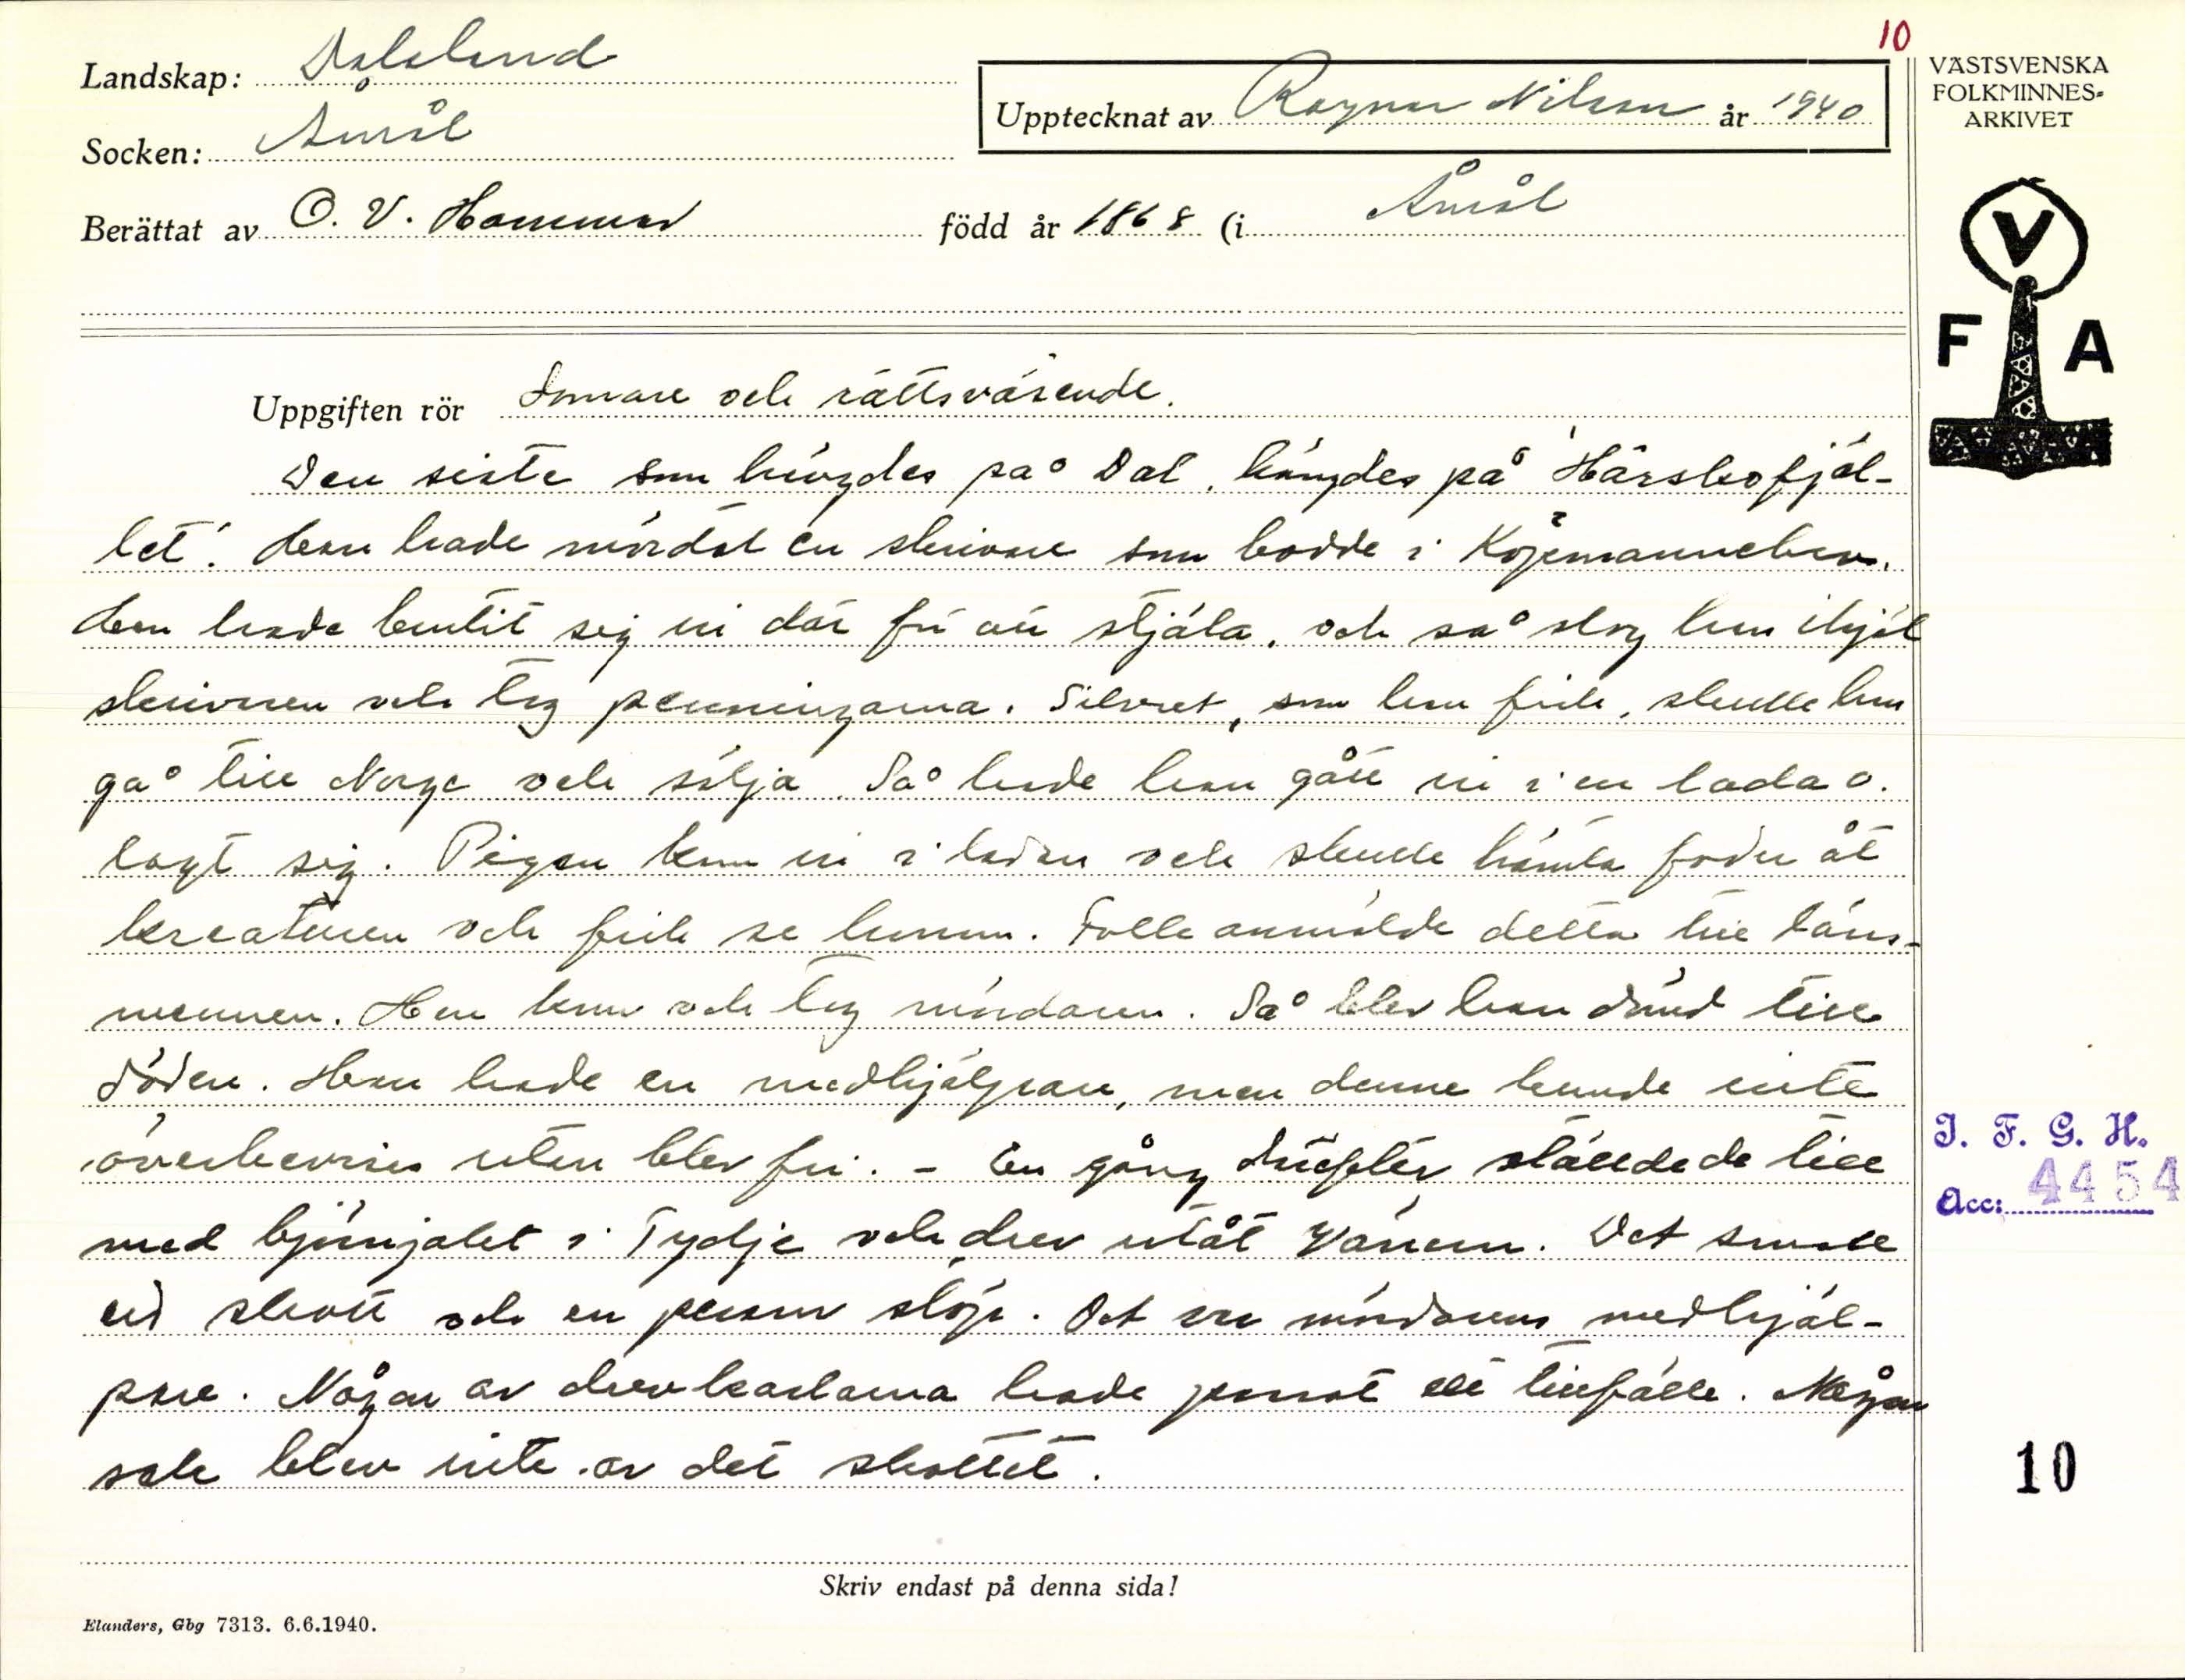 10
Landskap: Dalsland
Upptecknat av Ragnar Nilsson år 1940
VÄSTSVENSKA
FOLKMINNES-
ARKIVET
Socken: Åmål
Berättat av O. V. Hammar född år 1868 (i Åmål
V
F A
Uppgiften rör Domare och rättsväsende.
Den siste som hängdes på Dal, hängdes på 'Härskofjäl-
let'. Han hade mördat en skrivare som bodde i Köpmannebro.
Han hade brutit sig in där för att stjäla, och så slog han ihjäl
skrivaren och tog penningarna. Silvret, som han fick, skulle han
gå till Norge och sälja. Så hade han gått in i en lada o.
lagt sig. Pigan kom in i ladan och skulle hämta foder åt
kreaturen och fick se honom. Folk anmälde detta till läns-
mannen. Han kom och tog mördaren. Så blev han dömd till
döden. Han hade en medhjälpare, men denne kunde inte
överbevisas utan blev fri. - En gång ställde de till
med björnjakt i Tydje och drev utåt Vänern. Det small
ett skott och en person stöp. Det var mördarens medhjäl-
pare. Någon av drevkarlarna hade passat ett tillfälle. Någon
sak blev inte av det skottet.
I. F. G. H.
Acc: 4454
10
Skriv endast på denna sida!
Elanders, Gbg 7313. 6.6.1940.